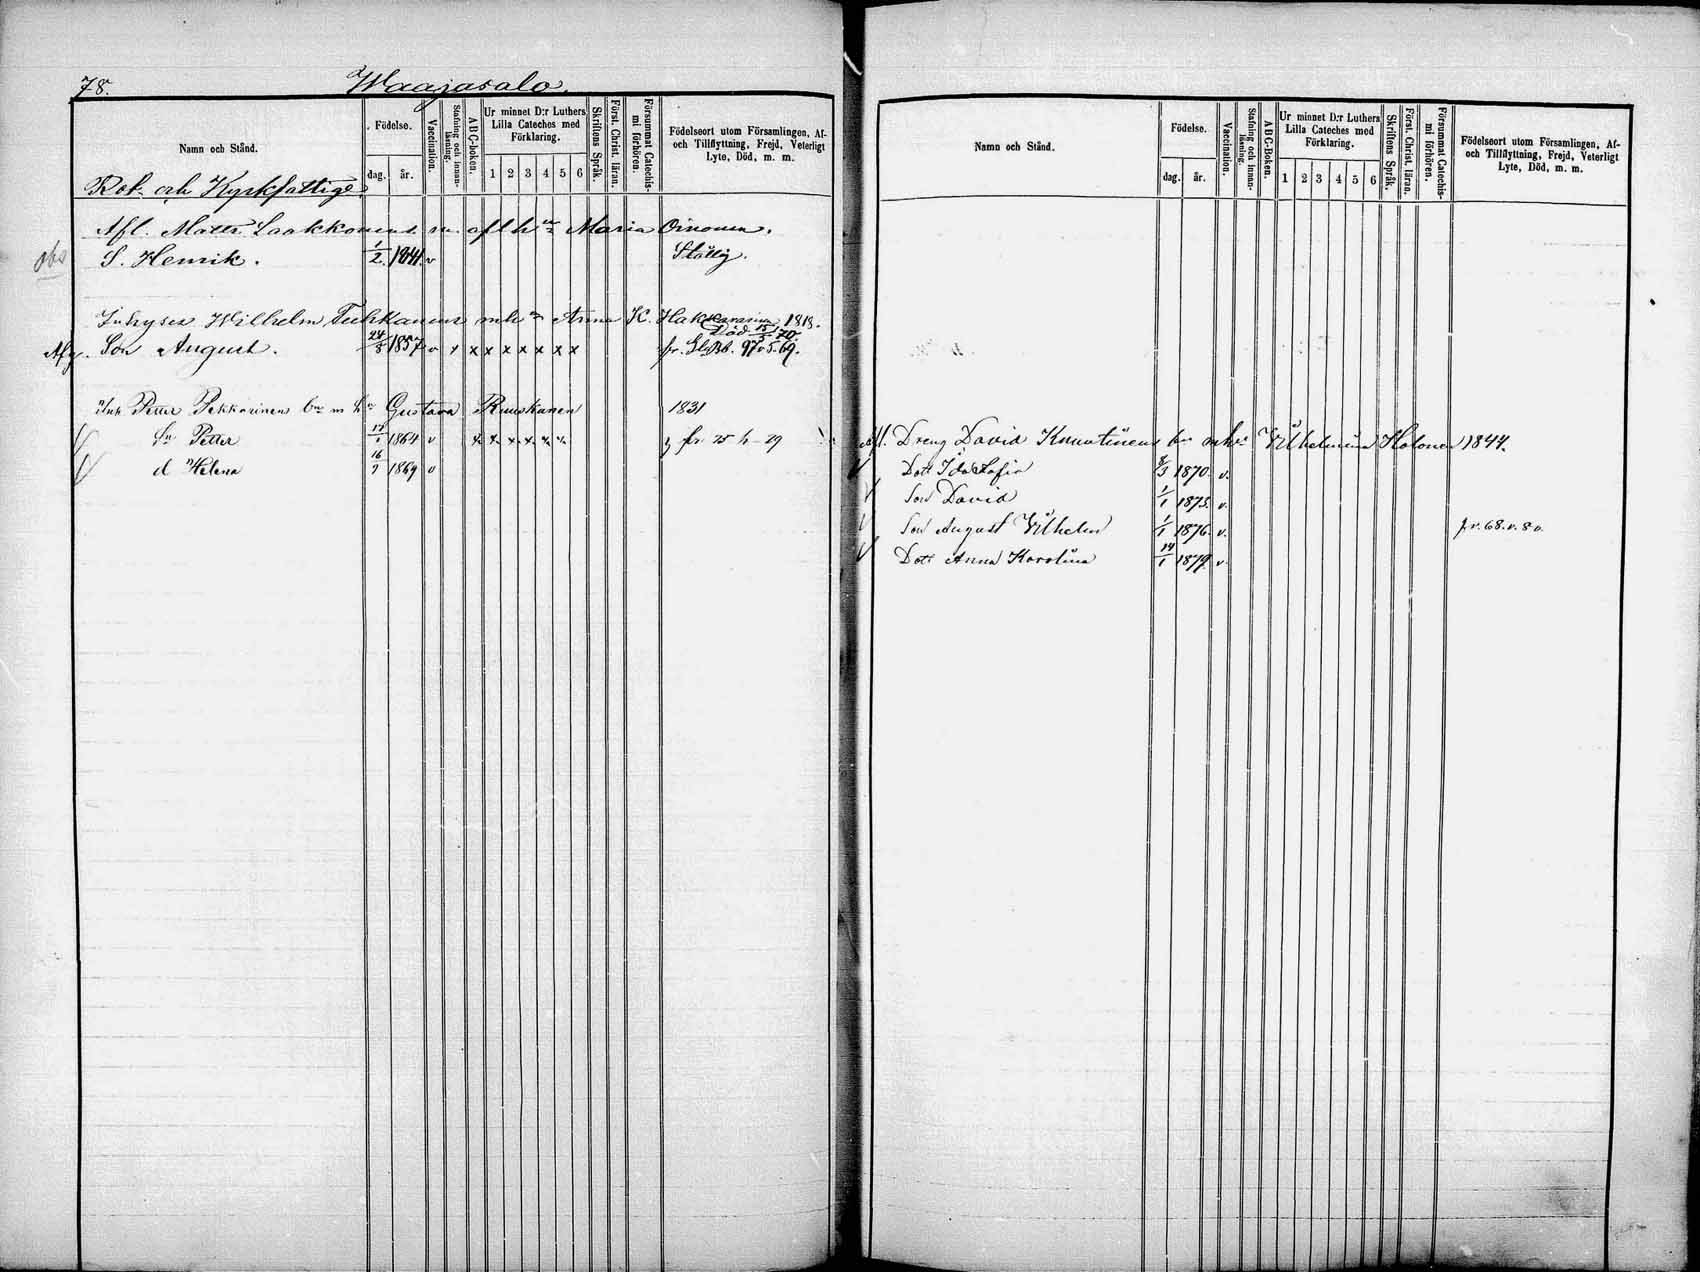 78. Waajasalo.
Namn och Stånd.
Födelse.
dag.
år.
Vaccination.
Stafning och innan-läsning.
ABC-boken.
Ur minnet D:r Luthers Lilla Cateches med Förklaring.
1 2 3 4 5 6
Skriftens Språk.
Först. Christ. läran.
Försummat Catechis-mi förhören.
Födelseort utom Församlingen, Af- och Tillflyttning, Frejd, Veterligt Lyte, Död, m. m.
Rot- och Kyrkfattige
Afl. Matts Laakkonens m. afl h:n Maria Oinonen.
obs S. Henrik. 1/2 1841. v
Inhyses Wilhelm Tuhkanens m h:n Anna K. Hakkarainen 1818.
Död 15/5 70.
Son August. 24/8 1857 v x x x x x x x x fr. 97 v 5. 69.
Inh Petter Pekkarinens b:n m h:n Gustava Ruuskanen 1831
Sn Petter 17/1 1864 v x x x x x x fr 75 h - 79
d Helena 16/9 1869 v
Namn och Stånd.
Födelse.
dag.
år.
Vaccination.
Stafning och innan-läsning.
ABC-Boken.
Ur minnet D:r Luthers Lilla Cateches med Förklaring.
1 2 3 4 5 6
Skriftens Språk.
Först. Christ. läran.
Försummat Catechis-mi förhören.
Födelseort utom Församlingen, Af- och Tillflyttning, Frejd, Veterligt Lyte, Död, m. m.
Afl. Dreng David Knuutinens b:n m h:n Vilhelmina Holonen 1844.
Dott Ida Sofia 8/3 1870. v.
Son David 1/1 1873. v.
Son August Vilhelm 1/1 1876. v. fr. 68. v. 80.
Dott Anna Karolina 14/1 1879. v